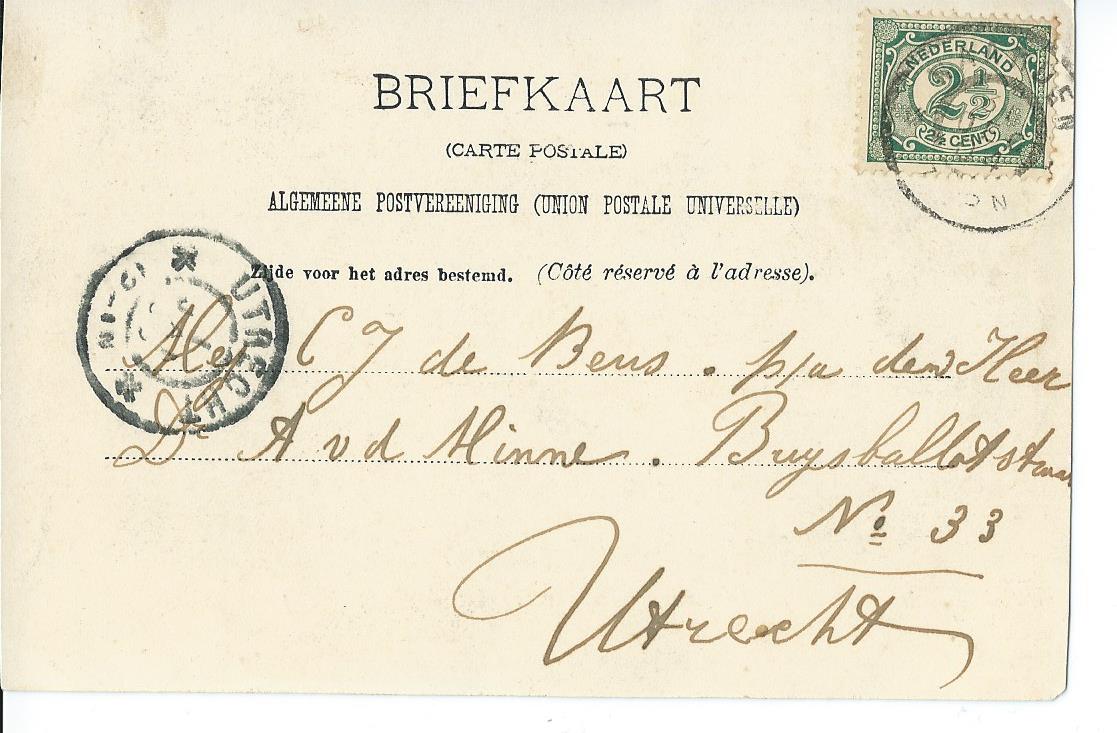 BRIEFKAART
(CARTE POSTALE)
ALGEMEENE POSTVEREENIGING (UNION POSTALE UNIVERSELLE)
Zijde voor het adres bestemd. (Côté réservé à l'adresse).
NEDERLAND
2½
2½ CENT
UTRECHT
Mej C J de Beus. p/a den Heer
Dr A v d Minne. Buysballotstraat
No 33
Utrecht